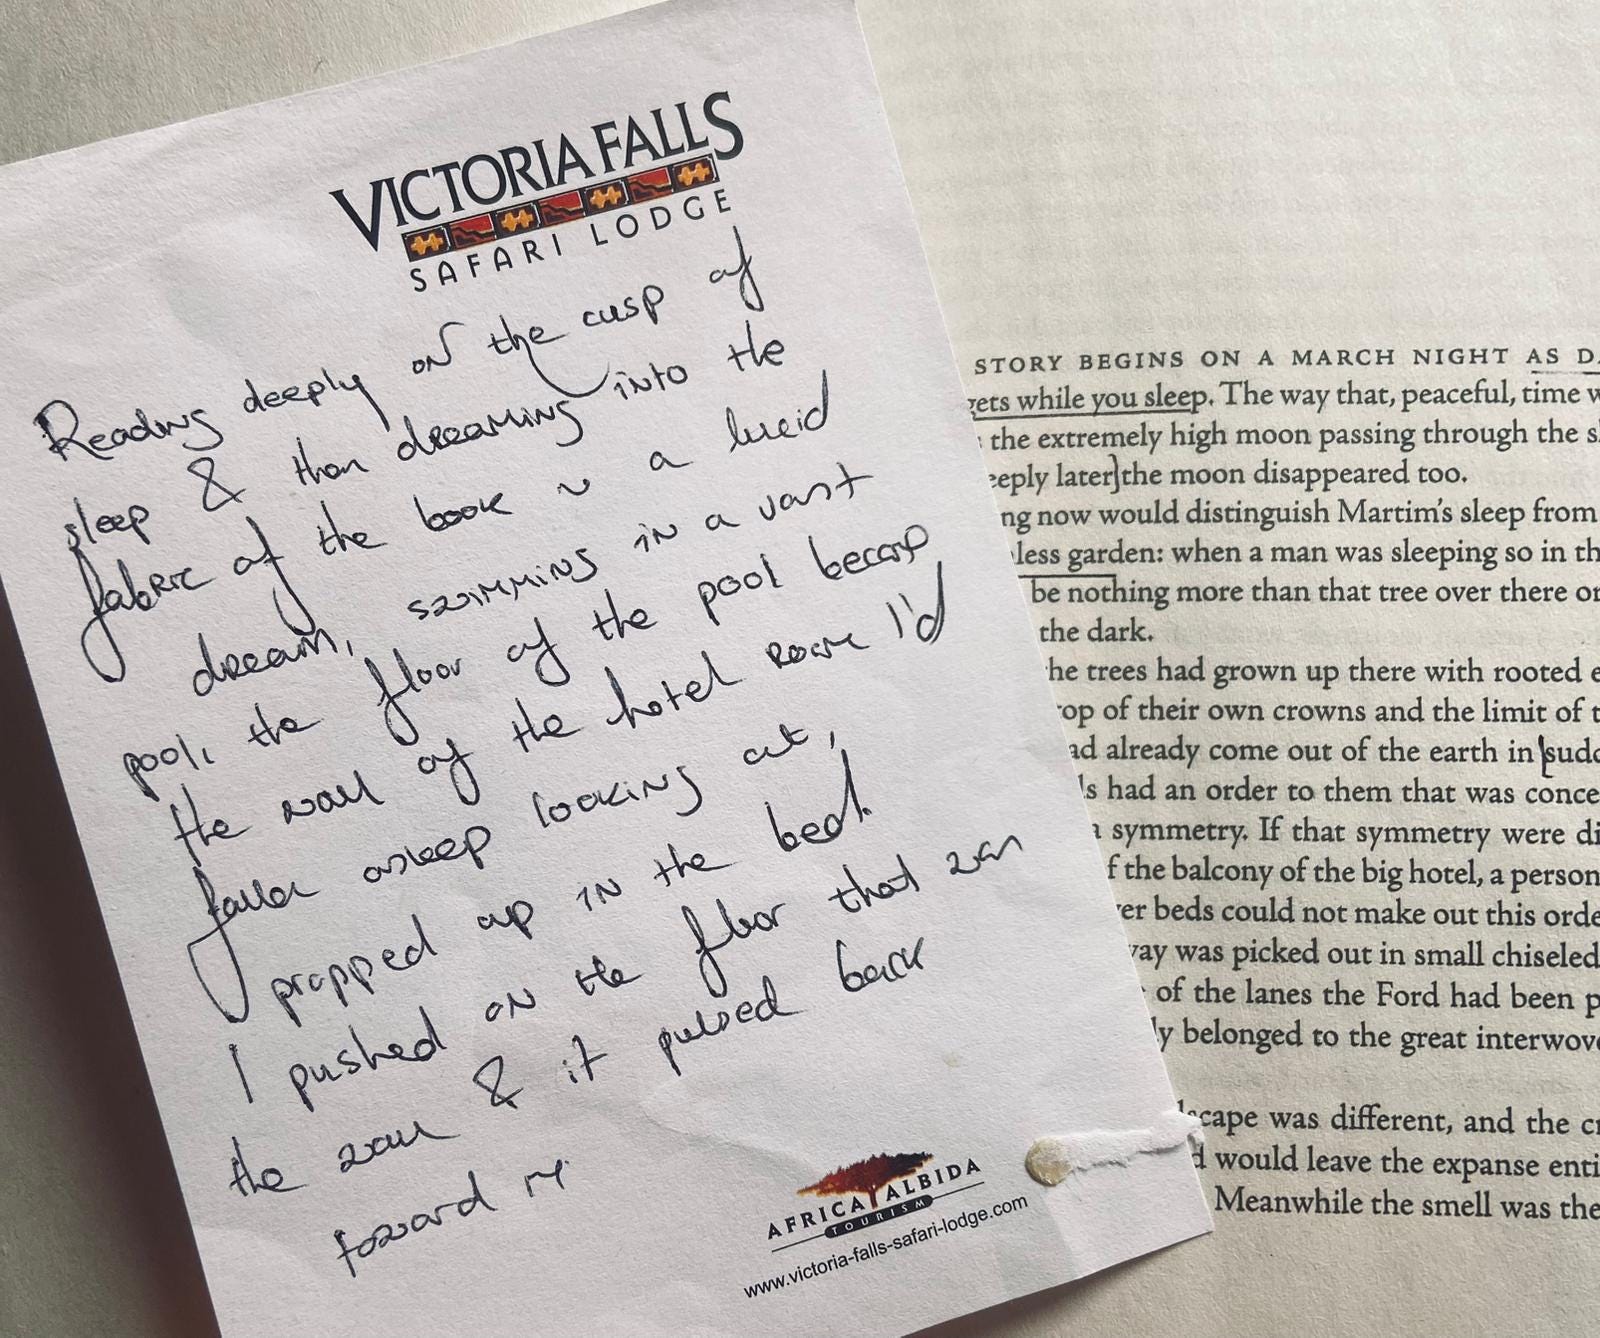 VICTORIA FALLS
SAFARI LODGE
Reading deeply on the cusp of
sleep & then dreaming into the
fabric of the book ~ a lucid
dream, swimming in a vast
pool, the floor of the pool became
the wall of the hotel room I'd
fallen asleep looking at,
propped up in the bed.
I pushed on the floor that was
the wall & it pulsed back
toward me
AFRICA ALBIDA
TOURISM
www.victoria-falls-safari-lodge.com
STORY BEGINS ON A MARCH NIGHT AS D
gets while you sleep. The way that, peaceful, time w
the extremely high moon passing through the s
eeply later]the moon disappeared too.
ng now would distinguish Martim's sleep from
less garden: when a man was sleeping so in th
be nothing more than that tree over there or
the dark.
he trees had grown up there with rooted e
op of their own crowns and the limit of t
ad already come out of the earth in [sudd
s had an order to them that was conce
a symmetry. If that symmetry were di
f the balcony of the big hotel, a person
er beds could not make out this orde
way was picked out in small chiseled
of the lanes the Ford had been p
ly belonged to the great interwov
scape was different, and the cr
d would leave the expanse enti
Meanwhile the smell was the